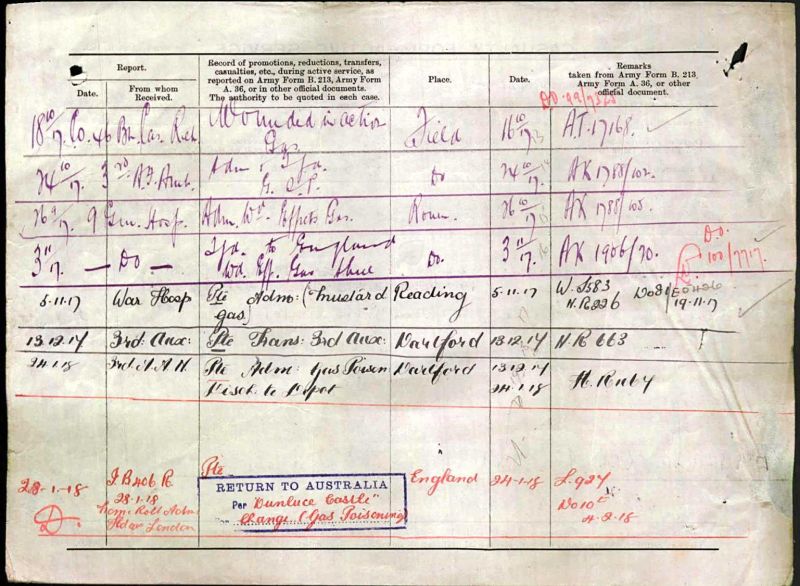 Report.
Record of promotions, reductions, transfers,
casualties, etc., during active service, as
reported on Army Form B. 213, Army Form
A. 36, or in other official documents.
The authority to be quoted in each case.
Place.
Date.
Remarks
taken from Army Form B. 213,
Army Form A. 36, or other
official document.
Date.
From whom
Received.
Wounded in action
Gas.
Field
A.T. 17168.
24 10/17.
Do
24 10/17.
AK 1788/102.
9 Gen. Hosp.
Adm. Wd. Effects Gas.
Rouen.
26 10/17.
AK 1788/105.
3 11/17.
— Do —
to England
Wd. Eff. Gas
Do.
3 11/17.
AK 1906/70.
D.O.
100/7717.
5.11.17
War Hosp
Pte Adm: (mustard
gas)
Reading
5.11.17
19.11.17
13.12.17
3rd: Aux:
Pte Trans: 3rd Aux:
Dartford
13.12.17
H.R 663
24.1.18
3rd A.A.H.
Pte Adm: Gas Poison
Disch. to Depot
Dartford
13.12.17
24.1.18
28-1-18
28-1-18
London
Pte
RETURN TO AUSTRALIA
Per "Dunluce Castle"
Change (Gas Poisoning)
England
24-1-18
L.927
4-2-18